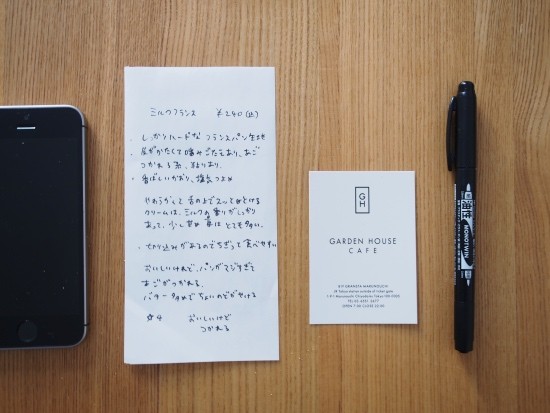 ミルクフランス ¥240(込)
・しっかりハードな フランスパン生地
皮がかたくて噛みごたえあり、あご
つかれる系、
・香ばしいかおり、塩気つよめ
やわらかくて舌の上でスッととける
クリームは、ミルクの香りがしっかり
あって、少し甘め 量は とても多い。
・切り込みがあるのでちぎって食べやすい
おいしいけれど、パンがマジすぎて
あごがつかれる。
バター 多めで
☆4 おいしいけど
つかれる
GH
GARDEN HOUSE
CAFE
B1F GRANSTA MARUNOUCHI
TOKYO
MONOTWIN